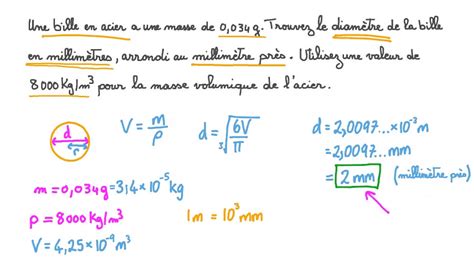 Une bille en acier a une masse de 0,034g. Trouvez le diamètre de la bille
en millimètres, arrondi au millimètre près. Utilisez une valeur de
8000 Kg/m³ pour la masse volumique de l'acier.
d
r
V = m/ρ
d = ∛(6V/π)
d = 2,0097... × 10⁻³ m
= 2,0097... mm
= 2 mm (millimètre près)
m = 0,034g = 3,4 × 10⁻⁵ kg
ρ = 8000 Kg/m³
1m = 10³ mm
V = 4,25 × 10⁻⁹ m³